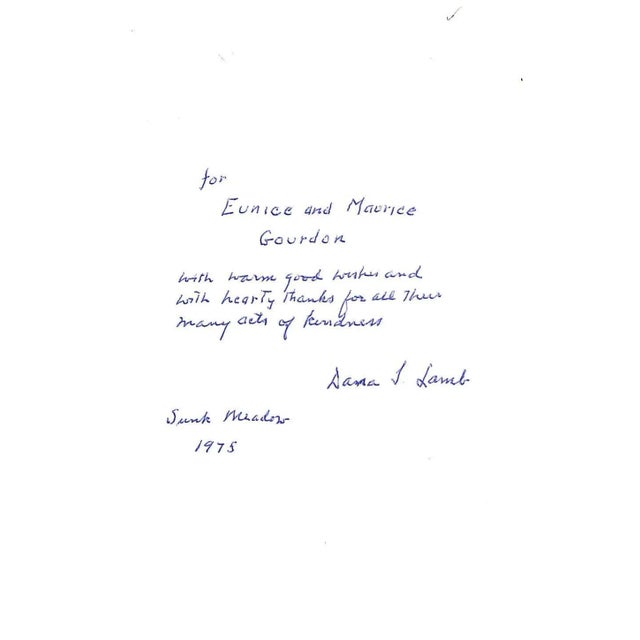 for
Eunice and Maurice
Gourdon
with warm good wishes and
with hearty thanks for all their
many acts of kindness
Dana S. Lamb
Sunk Meadow
1975